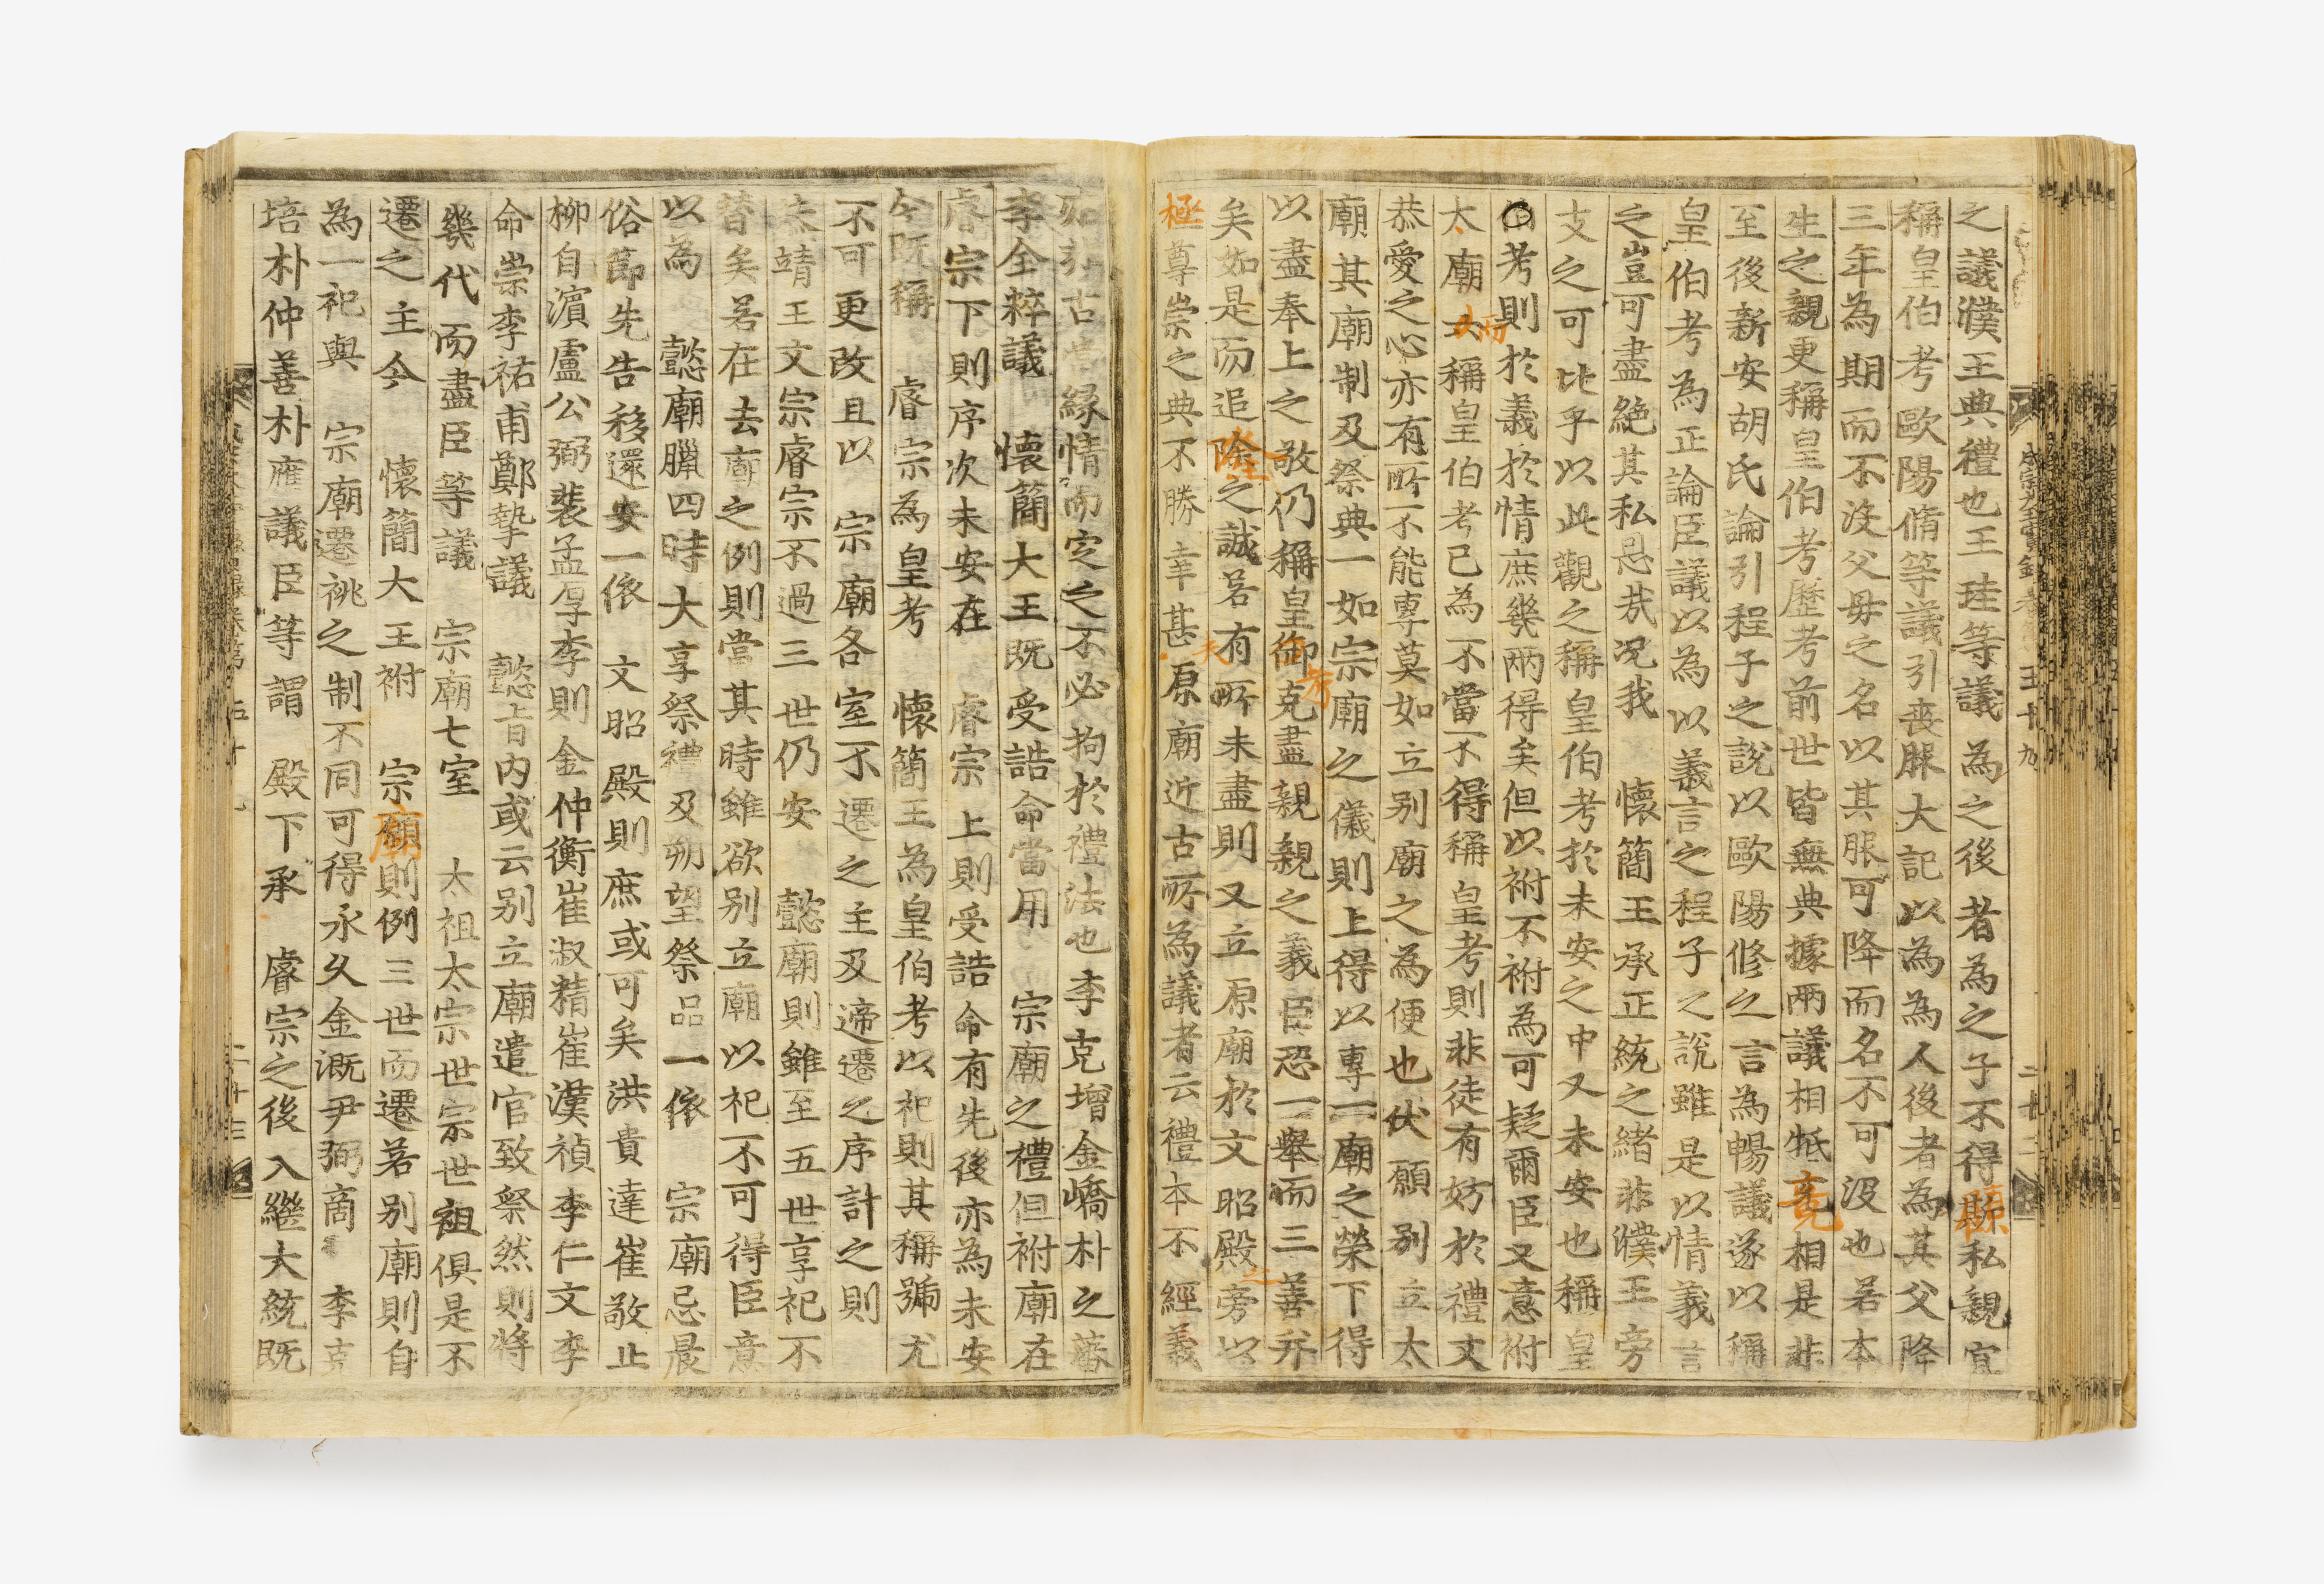 之議濮王典禮也王珪等議爲之後者爲之子不得顧私親宜
稱皇伯考歐陽脩等議引喪服大記以爲爲人後者爲其父降
三年爲期而不沒父母之名以其服可降而名不可沒也若本
生之親更稱皇伯考歷考前世皆無典據兩議相牴竟相是非
至後新安胡氏論引程子之說以歐陽修之言爲暢議遂以稱
皇伯考爲正論臣議以爲以義言之程子之說雖是以情義言
之豈可盡絶其私恩哉況我 懷簡王承正統之緖非濮王旁
支之可比乎以此觀之稱皇伯考於未安之中又未安也稱皇
考則於義於情庶幾兩得矣但以祔不祔爲可疑爾臣又意祔
太廟而稱皇伯考已爲不當不得稱皇考則非徒有妨於禮文
恭愛之心亦有所不能專莫如立別廟之爲便也伏願別立太
廟其廟制及祭典一如宗廟之儀則上得以專一廟之榮下得
以盡奉上之敬仍稱皇考御克盡親親之義臣恐一擧而三善幷
矣如是而追隆之誠若有所未盡則又立原廟於文昭殿之旁以
極尊崇之典不勝幸甚原廟近古所爲議者云禮本不經義
成宗大王實錄卷 五十九 二十三
如引古 緣情而定之不必拘於禮法也李克增金嶠朴之蕃
李全粹議 懷簡大王旣受誥命當用 宗廟之禮但祔廟在
睿宗下則序次未安在 睿宗上則受誥命有先後亦爲未安
今旣稱 睿宗爲皇考 懷簡王爲皇伯考以祀則其稱號尤
不可更改且以 宗廟各室不遷之主及遞遷之序計之則
恭靖王文宗睿宗不過三世仍安 懿廟則雖至五世享祀不
替矣若在去廟之例則當其時雖欲別立廟以祀不可得臣意
以爲 懿廟臘四時大享祭禮及朔望祭品一依 宗廟忌晨
俗節先告移還安一依 文昭殿則庶或可矣洪貴達崔敬止
柳自濱盧公弼裴孟厚李則金仲衡崔淑精崔漢禎李仁文李
命崇李祐甫鄭摯議 懿旨內或云別立廟遣官致祭然則將
幾代而盡臣等議 宗廟七室 太祖太宗世宗世祖俱是不
遷之主今 懷簡大王祔 宗廟則例三世而遷若別廟則自
爲一祀與 宗廟遷祧之制不同可得永久金漑尹弼商 李克
培朴仲善朴雁議臣等謂 殿下承 睿宗之後入繼大統旣
五十九 二十三